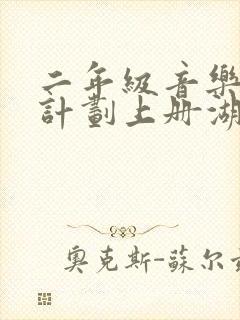 二年級音樂
計劃上册湖
奧克斯-蘇尔